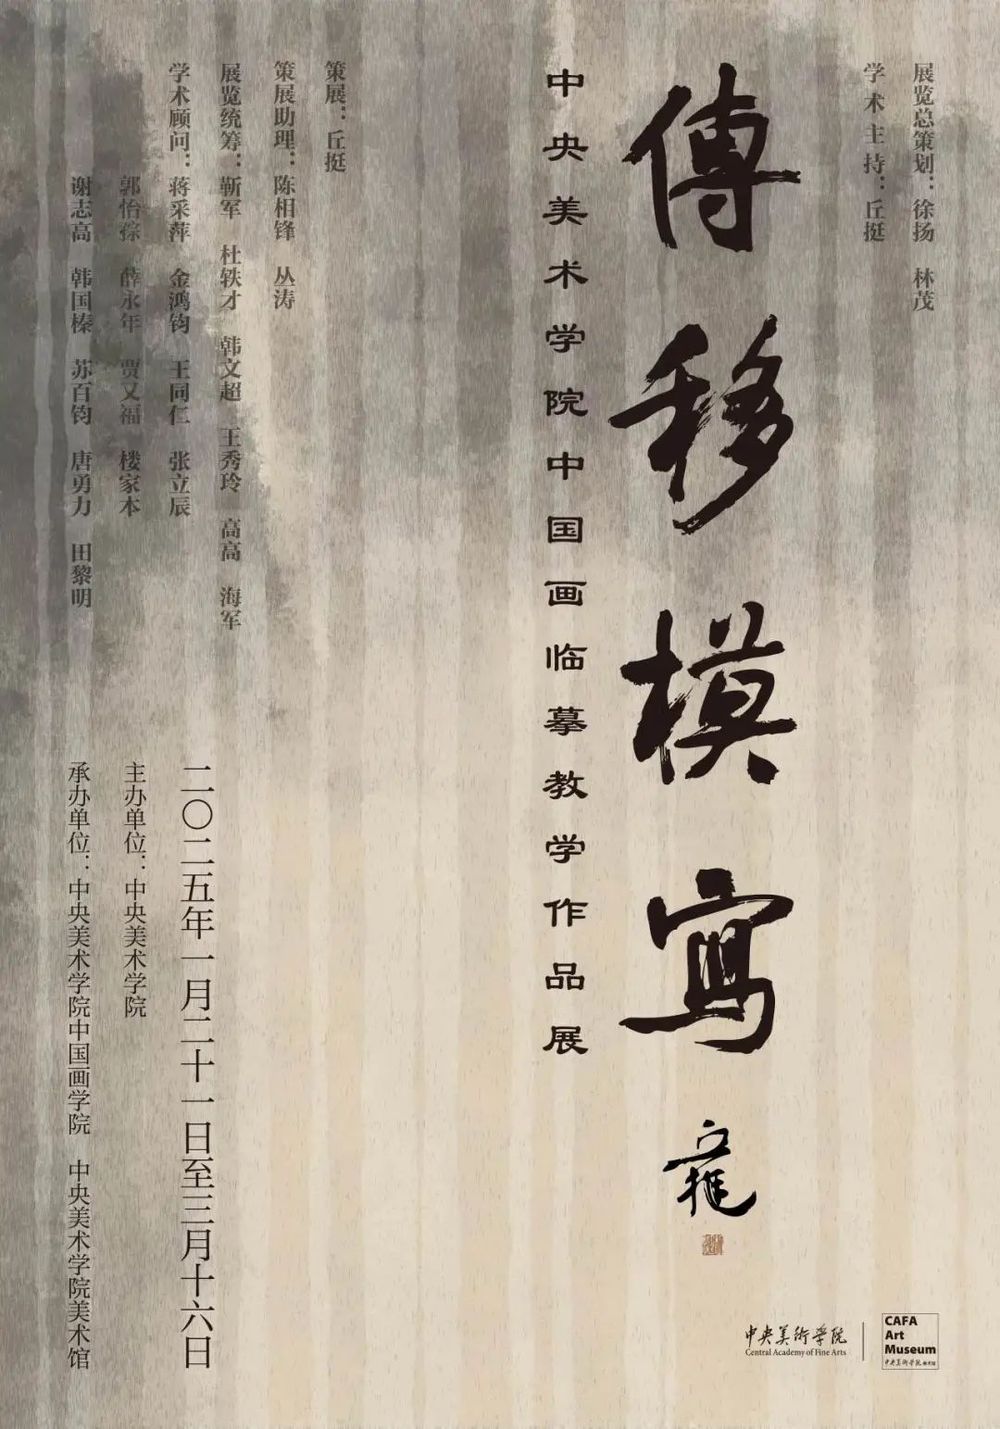 展览总策划：徐扬 林茂
学术主持：丘挺
傳移模寫
中央美术学院中国画临摹教学作品展
策展：丘挺
策展助理：陈相锋 丛涛
展览统筹：靳军 杜轶才 韩文超 王秀玲 高高 海军
学术顾问：蒋采萍 金鸿钧 王同仁 张立辰
郭怡孮 薛永年 贾又福 楼家本
谢志高 韩国榛 苏百钧 唐勇力 田黎明
二〇二五年一月二十一日至三月十六日
主办单位：中央美术学院
承办单位：中央美术学院中国画学院 中央美术学院美术馆
中央美術学院
Central Academy of Fine Arts
CAFA
Art
Museum
中央美術学院 美术馆